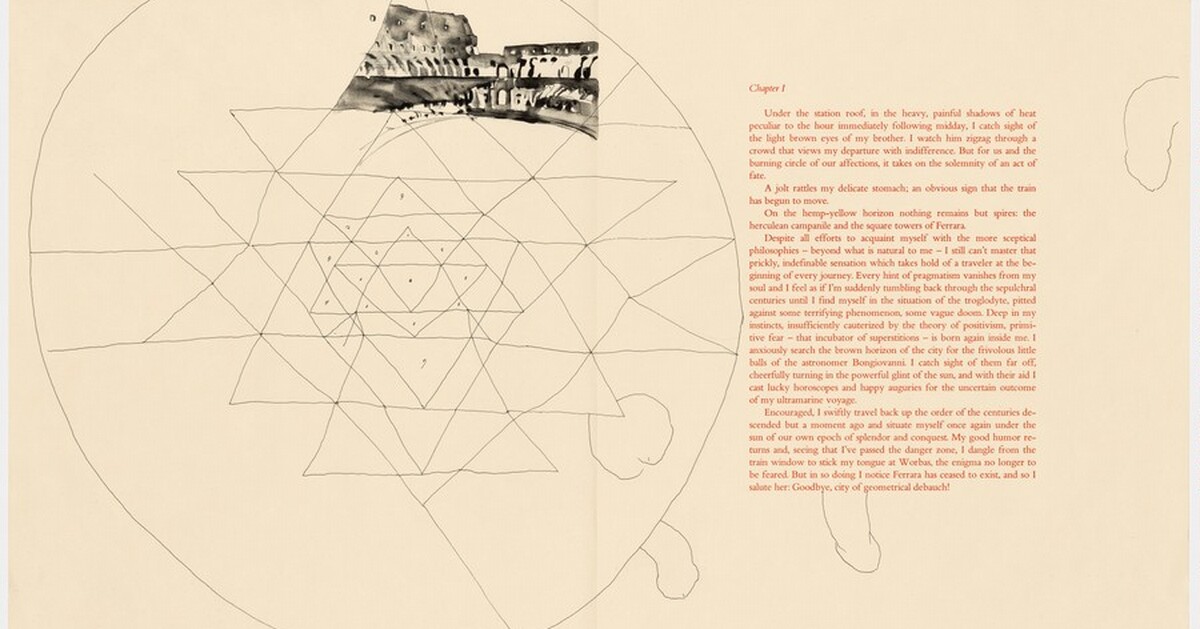 Chapter I
Under the station roof, in the heavy, painful shadows of heat
peculiar to the hour immediately following midday, I catch sight of
the light brown eyes of my brother. I watch him zigzag through a
crowd that views my departure with indifference. But for us and the
burning circle of our affections, it takes on the solemnity of an act of
fate.
A jolt rattles my delicate stomach; an obvious sign that the train
has begun to move.
On the hemp-yellow horizon nothing remains but spires: the
herculean campanile and the square towers of Ferrara.
Despite all efforts to acquaint myself with the more sceptical
philosophies – beyond what is natural to me – I still can't master that
prickly, indefinable sensation which takes hold of a traveler at the be-
ginning of every journey. Every hint of pragmatism vanishes from my
soul and I feel as if I'm suddenly tumbling back through the sepulchral
centuries until I find myself in the situation of the troglodyte, pitted
against some terrifying phenomenon, some vague doom. Deep in my
instincts, insufficiently cauterized by the theory of positivism, primi-
tive fear – that incubator of superstitions – is born again inside me. I
anxiously search the brown horizon of the city for the frivolous little
balls of the astronomer Bongiovanni. I catch sight of them far off,
cheerfully turning in the powerful glint of the sun, and with their aid I
cast lucky horoscopes and happy auguries for the uncertain outcome
of my ultramarine voyage.
Encouraged, I swiftly travel back up the order of the centuries de-
scended but a moment ago and situate myself once again under the
sun of our own epoch of splendor and conquest. My good humor re-
turns and, seeing that I've passed the danger zone, I dangle from the
train window to stick my tongue at Worbas, the enigma no longer to
be feared. But in so doing I notice Ferrara has ceased to exist, and so I
salute her: Goodbye, city of geometrical debauch!